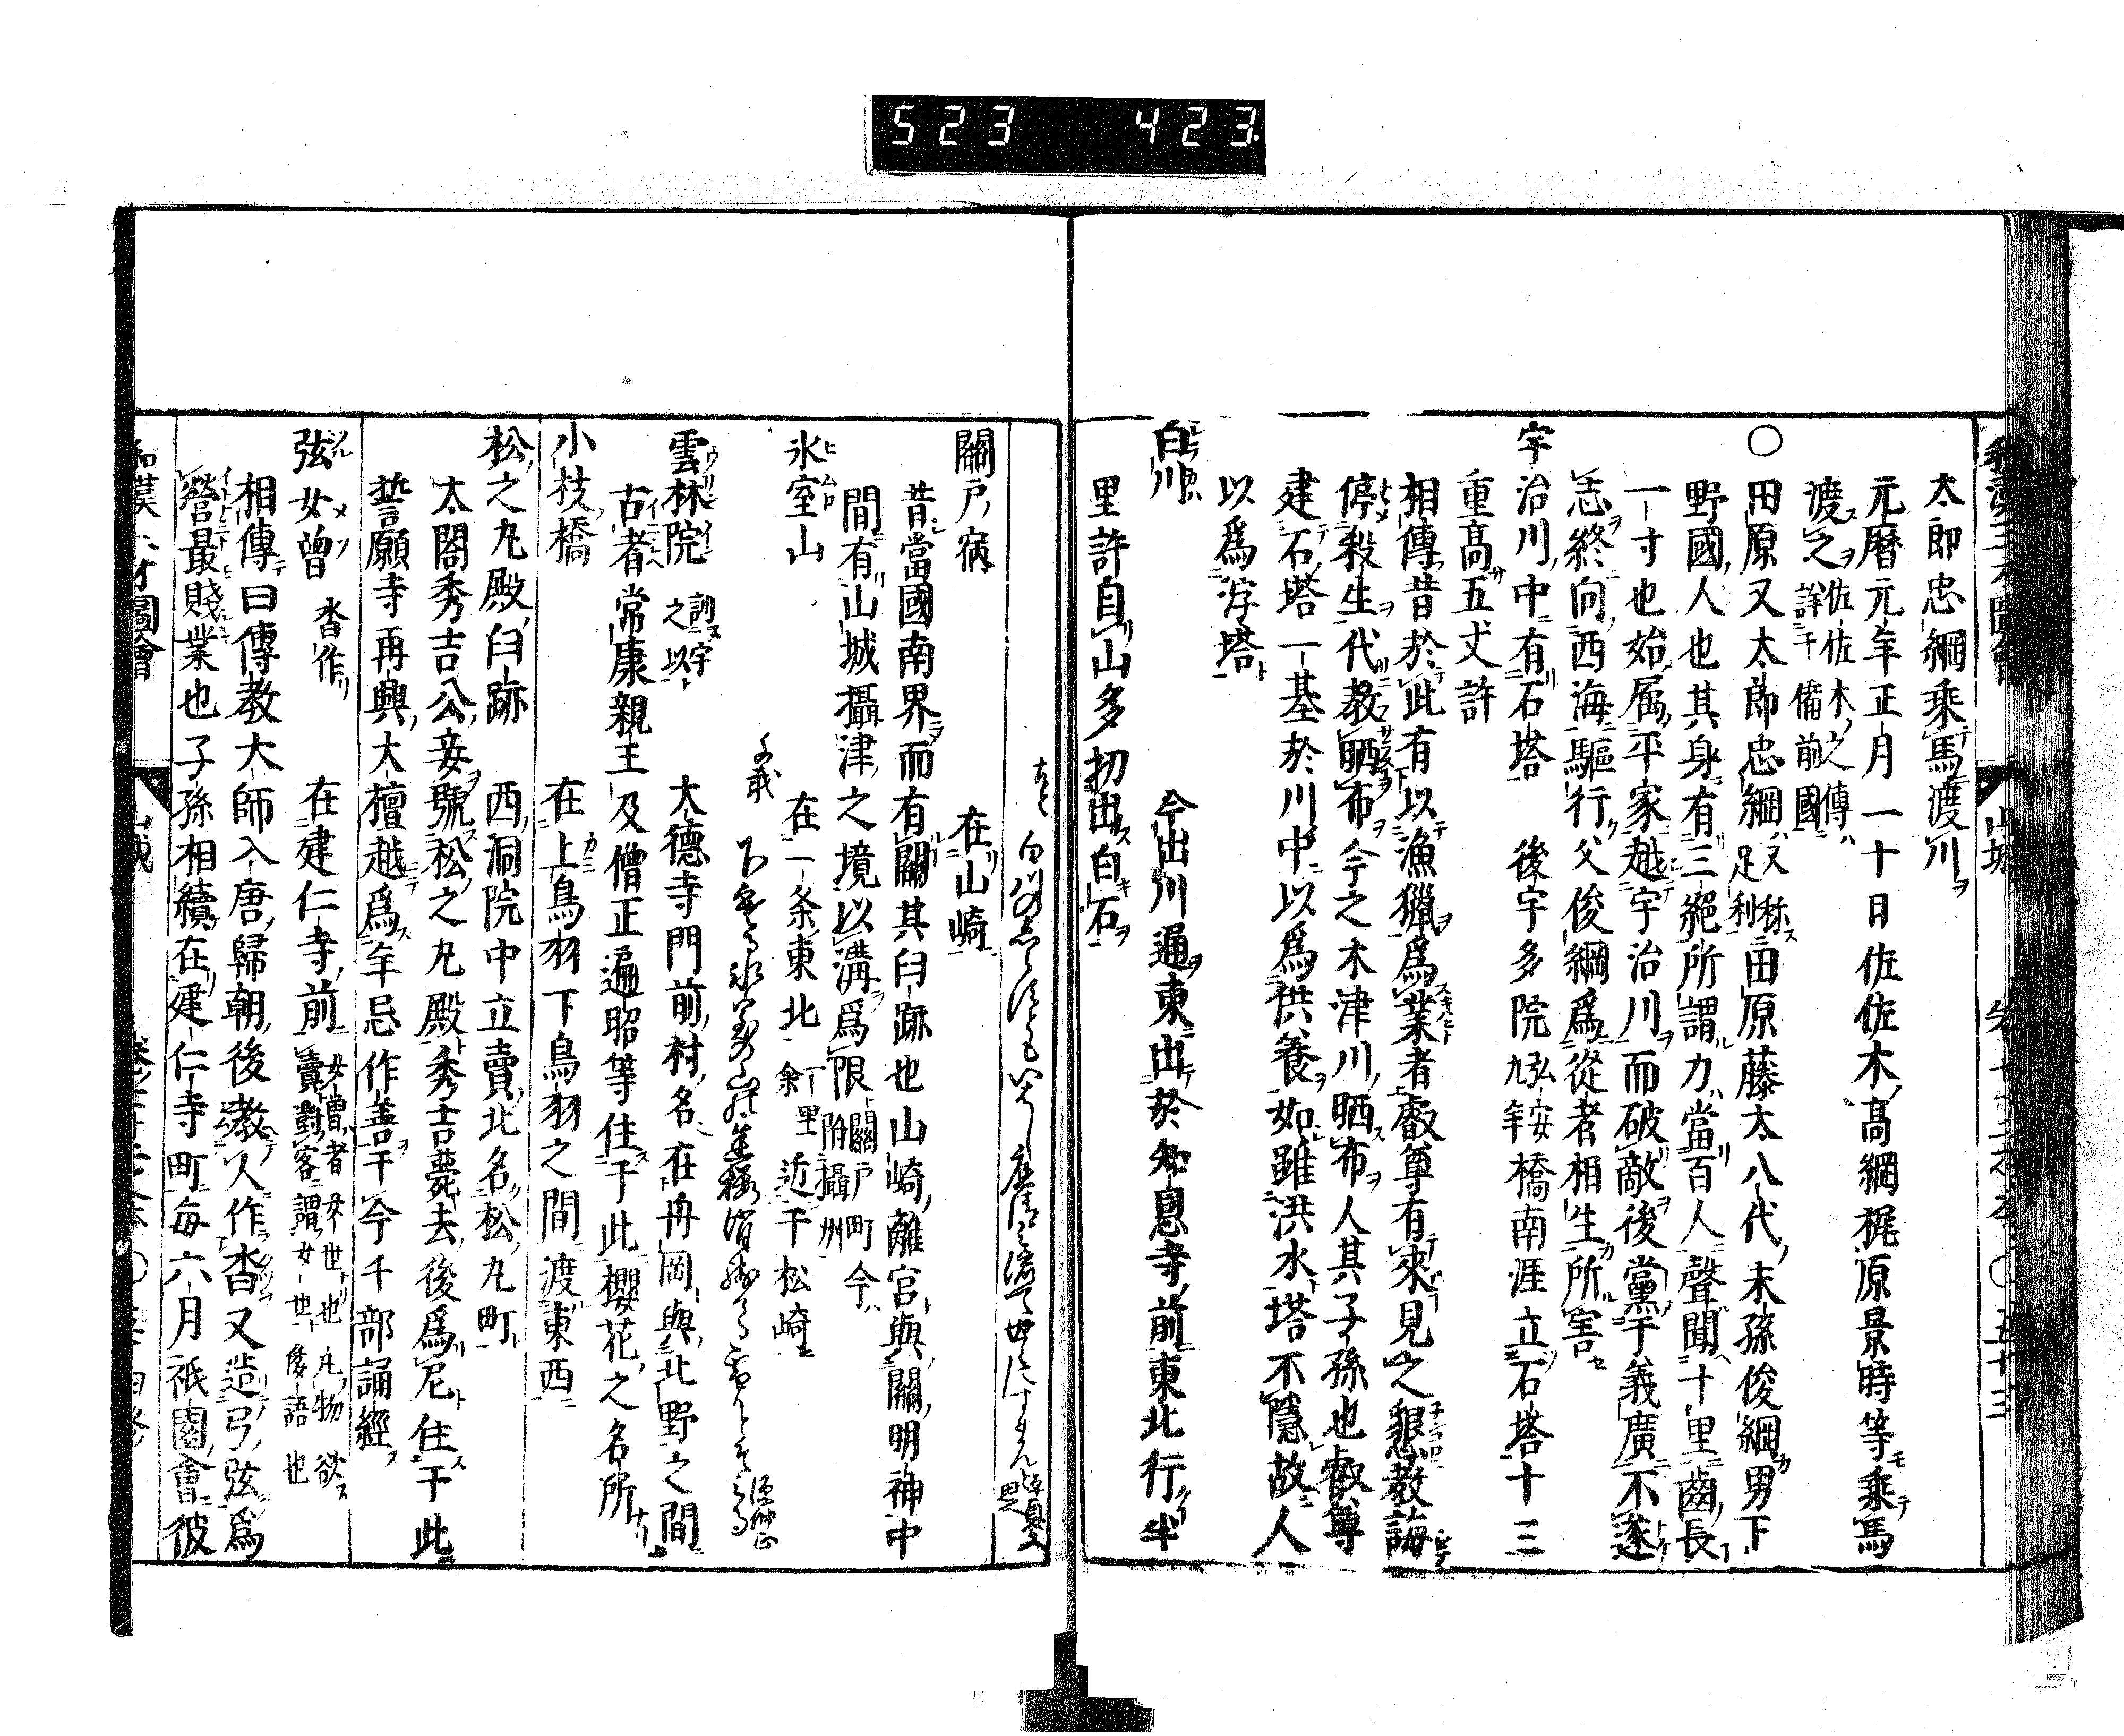 523 423
山城
太郎忠綱乘馬渡川
元曆元年正月二十日佐佐木高綱梶原景時等乘馬
渡之佐佐木之傳詳于備前國
○田原又太郎忠綱又称足利田原藤太八代末孫俊綱男下
野國人也其身有三絕所謂力當百人聲聞十里齒長
一寸也始属平家越宇治川而破敵後黨于義廣不遂
志終向西海驅行父俊綱爲從者相生所害
宇治川中有石塔 後宇多院弘安九年橋南涯立石塔十三
重高五丈許
相傳昔於此有以漁獵爲業者叡尊有來見之懇教誨
停殺生代教晒布今之木津川晒布人其子孫也叡尊
建石塔一基於川中以爲供養如雖洪水塔不隱故人
以爲浮塔
白川 今出川通東出於知恩寺前東北行半
里許自山多切出白石
關戸病 在山崎
昔當國南界而有關其臼跡也山崎離宮與關明神中
間有山城攝津之境以溝爲限關戸町今附攝州
氷室山 在一条東北一里余近于松崎
雲林院訓宇之以 大德寺門前村名在舟岡與北野之間
古者常康親王及僧正遍昭等住于此櫻花之名所
小枝橋 在上鳥羽下鳥羽之間渡東西
松之丸殿臼跡 西洞院中立賣北名松丸町
太閤秀吉公妾號松之丸殿秀吉薨去後爲尼住于此
誓願寺再興大檀越爲年忌作善于今千部誦經
弦女曾 沓作 在建仁寺前女曾者女世也凡物欲賣對客謂女世倭語也
相傳曰傳教大師入唐歸朝後教人作沓又造弓弦爲
營最賤業也子孫相續在建仁寺町每六月祇園會彼
和漢三才圖會 山城